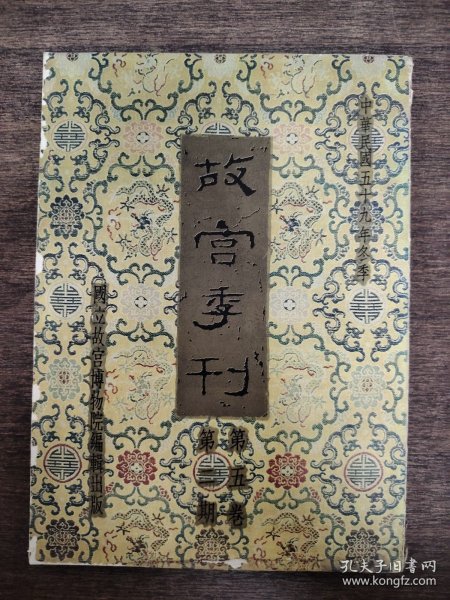 中華民國五十九年冬季
故宮季刊
第五卷
第二期
國立故宮博物院編輯出版
孔夫子旧书网
www.kongfz.com